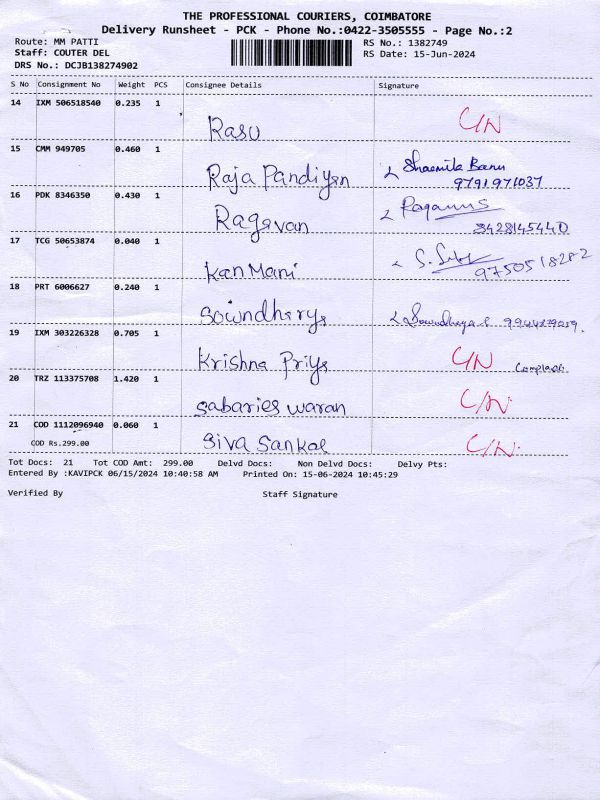 THE PROFESSIONAL COURIERS, COIMBATORE
Delivery Runsheet - PCK - Phone No.:0422-3505555 - Page No.:2
Route: MM PATTI
RS No.: 1382749
Staff: COUTER DEL
RS Date: 15-Jun-2024
DRS No.: DCJB138274902
S No Consignment No Weight PCS Consignee Details Signature
14 IXM 506518540 0.235 1
Rasu C/N
15 CMM 949705 0.460 1
Raja Pandiyan Sharmila Banu
9791971037
16 PDK 8346350 0.430 1
Ragavan
3428145440
17 TCG 50653874 0.040 1
KanMani 9750518282
18 PRT 6006627 0.240 1
Soundharya
19 IXM 303226328 0.705 1
Krishna Priya C/N
20 TRZ 113375708 1.420 1
Sabaries waran C/N
21 COD 1112096940 0.060 1
COD Rs.299.00 Siva Sankar C/N
Tot Docs: 21 Tot COD Amt: 299.00 Delvd Docs: Non Delvd Docs: Delvy Pts:
Entered By :KAVIPCK 06/15/2024 10:40:58 AM Printed On: 15-06-2024 10:45:29
Verified By Staff Signature